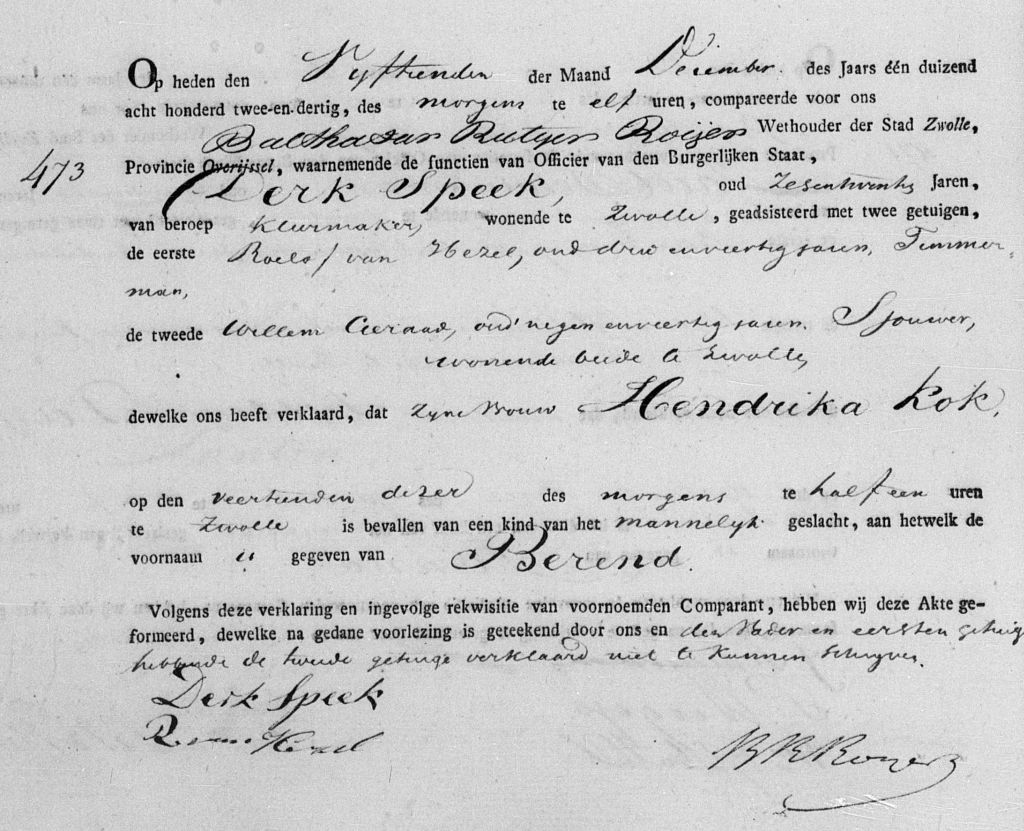 Op heden den Vyftienden der Maand December. des Jaars één duizend
acht honderd twee-en-dertig, des morgens te elf uren, compareerde voor ons
Balthasar Rutger Roijer Wethouder der Stad Zwolle,
473 Provincie Overijssel, waarnemende de functien van Officier van den Burgerlijken Staat,
Derk Speek, oud Zesentwintig Jaren,
van beroep Kleermaker, wonende te Zwolle, geadsisteerd met twee getuigen,
de eerste Roelof van Hezel, oud drie en veertig jaren, Timmer-
man,
de tweede Willem oud negen en veertig jaren. Sjouwer,
wonende beide te Zwolle,
dewelke ons heeft verklaard, dat zyne Vrouw Hendrika Kok,
op den veertienden dezer des morgens te half een uren
te Zwolle is bevallen van een kind van het mannelyk geslacht, aan hetwelk de
voornaam is gegeven van Berend.
Volgens deze verklaring en ingevolge rekwisitie van voornoemden Comparant, hebben wij deze Akte ge-
formeerd, dewelke na gedane voorlezing is geteekend door ons en den Vader en eersten getuige
hebbende de tweede getuige verklaard niet te kunnen schryven.
Derk Speek
R. van Hezel
B R Royer